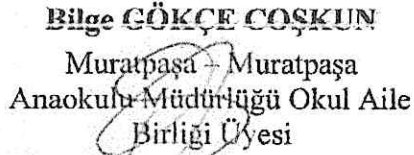 Bilge GÖKÇE COŞKUN
Muratpaşa – Muratpaşa
Anaokulu Müdürlüğü Okul Aile
Birliği Üyesi